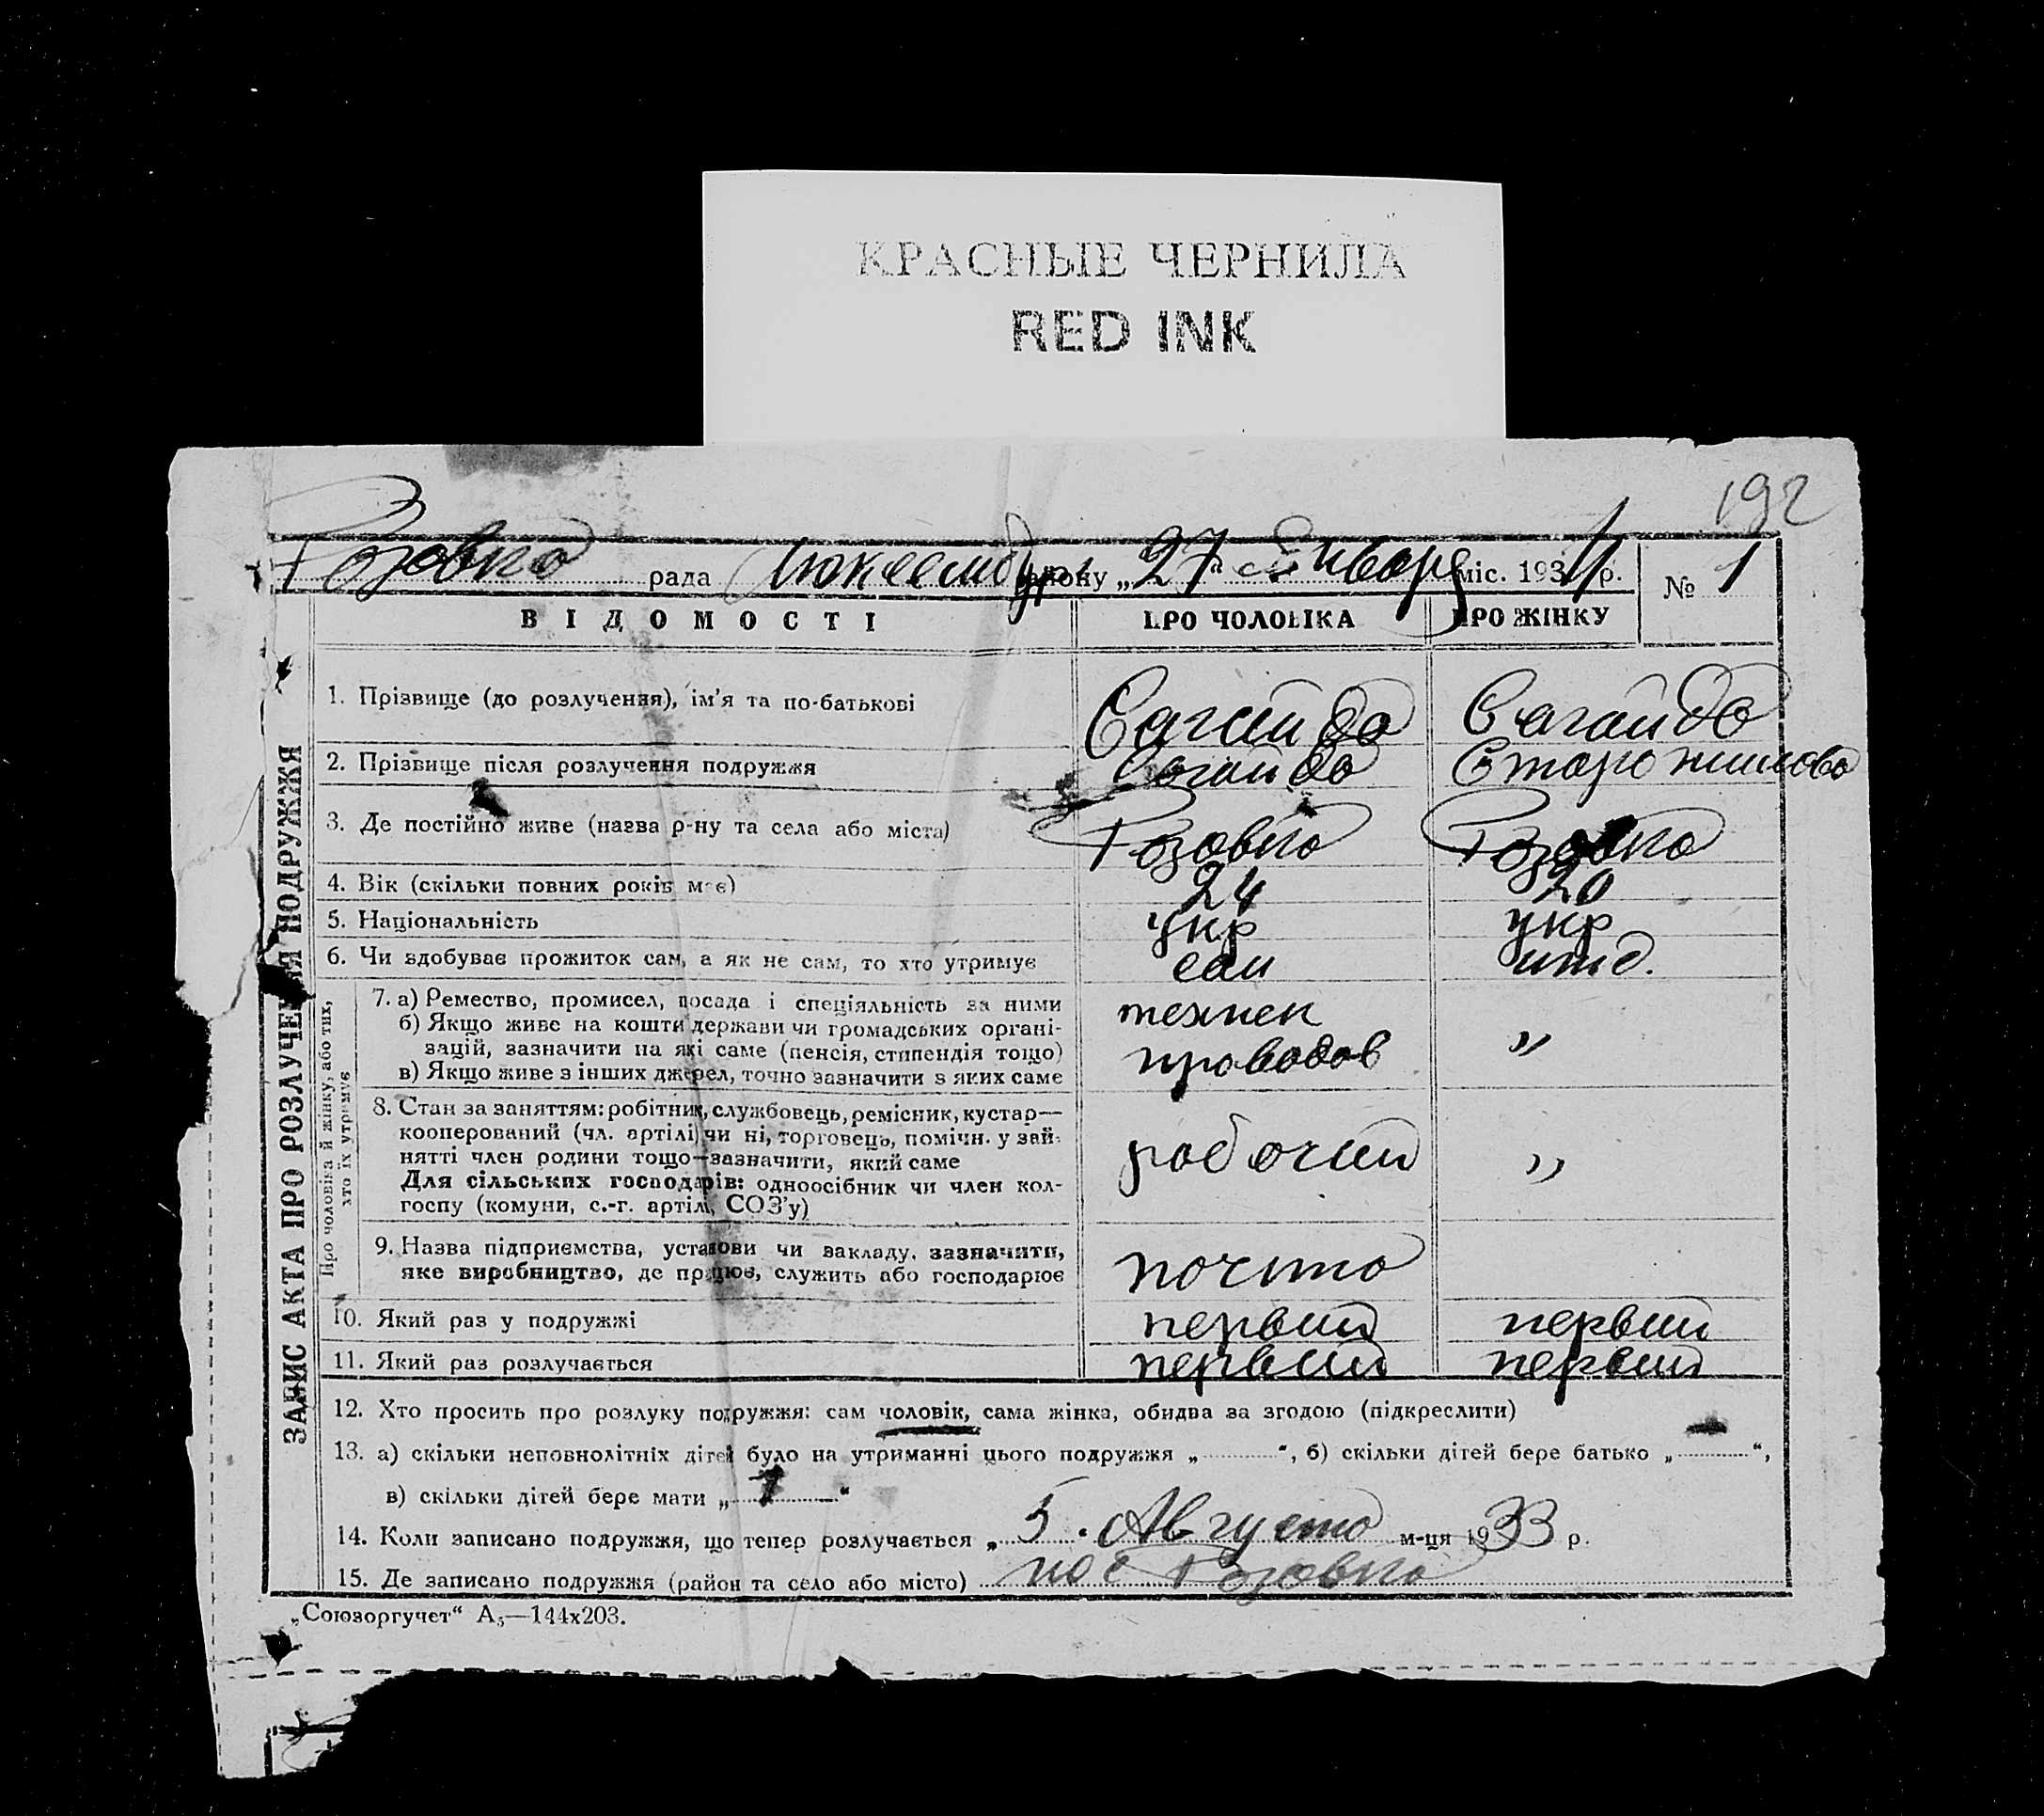 КРАСНЫЕ ЧЕРНИЛА
RED INK
192
Розовка рада району „27“ Января міс. 1934 р. № 1
ВІДОМОСТІ ПРО ЧОЛОВІКА ПРО ЖІНКУ
ЗАПИС АКТА ПРО РОЗЛУЧЕННЯ ПОДРУЖЖЯ
1. Прізвище (до розлучення), ім'я та по-батькові Сагайда Сагайда
2. Прізвище після розлучення подружжя Сагайда Старожилова
3. Де постійно живе (назва р-ну та села або міста) Розовка Розовка
4. Вік (скільки повних років має) 24 20
5. Національність укр укр
6. Чи здобуває прожиток сам, а як не сам, то хто утримує сам ижд.
Про чоловіка й жінку, або тих,
хто їх утримує
7. а) Ремество, промисел, посада і спеціяльність за ними техник
б) Якщо живе на кошти держави чи громадських органі-
зацій, зазначити на які саме (пенсія, стипендія тощо) проводов „
в) Якщо живе з інших джерел, точно зазначити з яких саме
8. Стан за заняттям: робітник, службовець, ремісник, кустар—
кооперований (чл. артілі) чи ні, торговець, помічн. у зай-
нятті член родини тощо—зазначити, який саме рабочий „
Для сільських господарів: одноосібник чи член кол-
госпу (комуни, с.-г. артілі, СОЗ'у)
9. Назва підприємства, установи чи закладу, зазначити,
яке виробництво, де працює, служить або господарює почта
10. Який раз у подружжі первий первий
11. Який раз розлучається первий первий
12. Хто просить про розлуку подружжя: сам чоловік, сама жінка, обидва за згодою (підкреслити)
13. а) скільки неповнолітніх дітей було на утриманні цього подружжя „ “, б) скільки дітей бере батько „ — “,
в) скільки дітей бере мати „ 1 “
14. Коли записано подружжя, що тепер розлучається „ 5. Августа м-ця 1933 р.
15. Де записано подружжя (район та село або місто) пос Розовка
„Союзоргучет“ А₅—144х203.